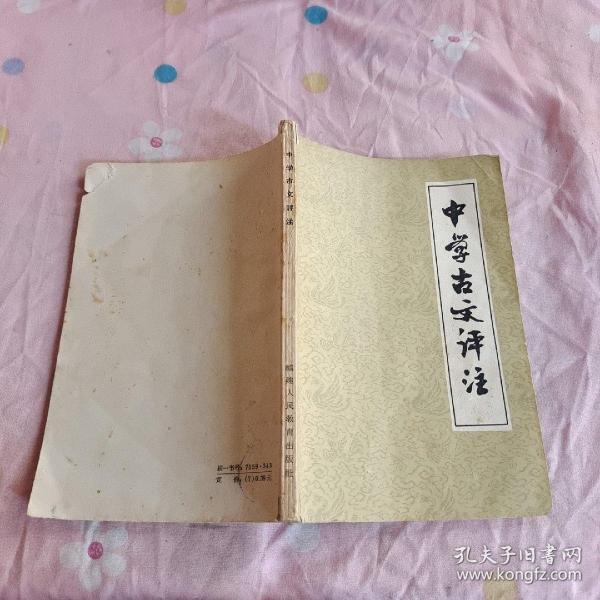 中学古文评注
中学古文评注
福建人民教育出版社
统一书号：7159·343
定 价：(7)0.38元
孔夫子旧书网
www.kongfz.com